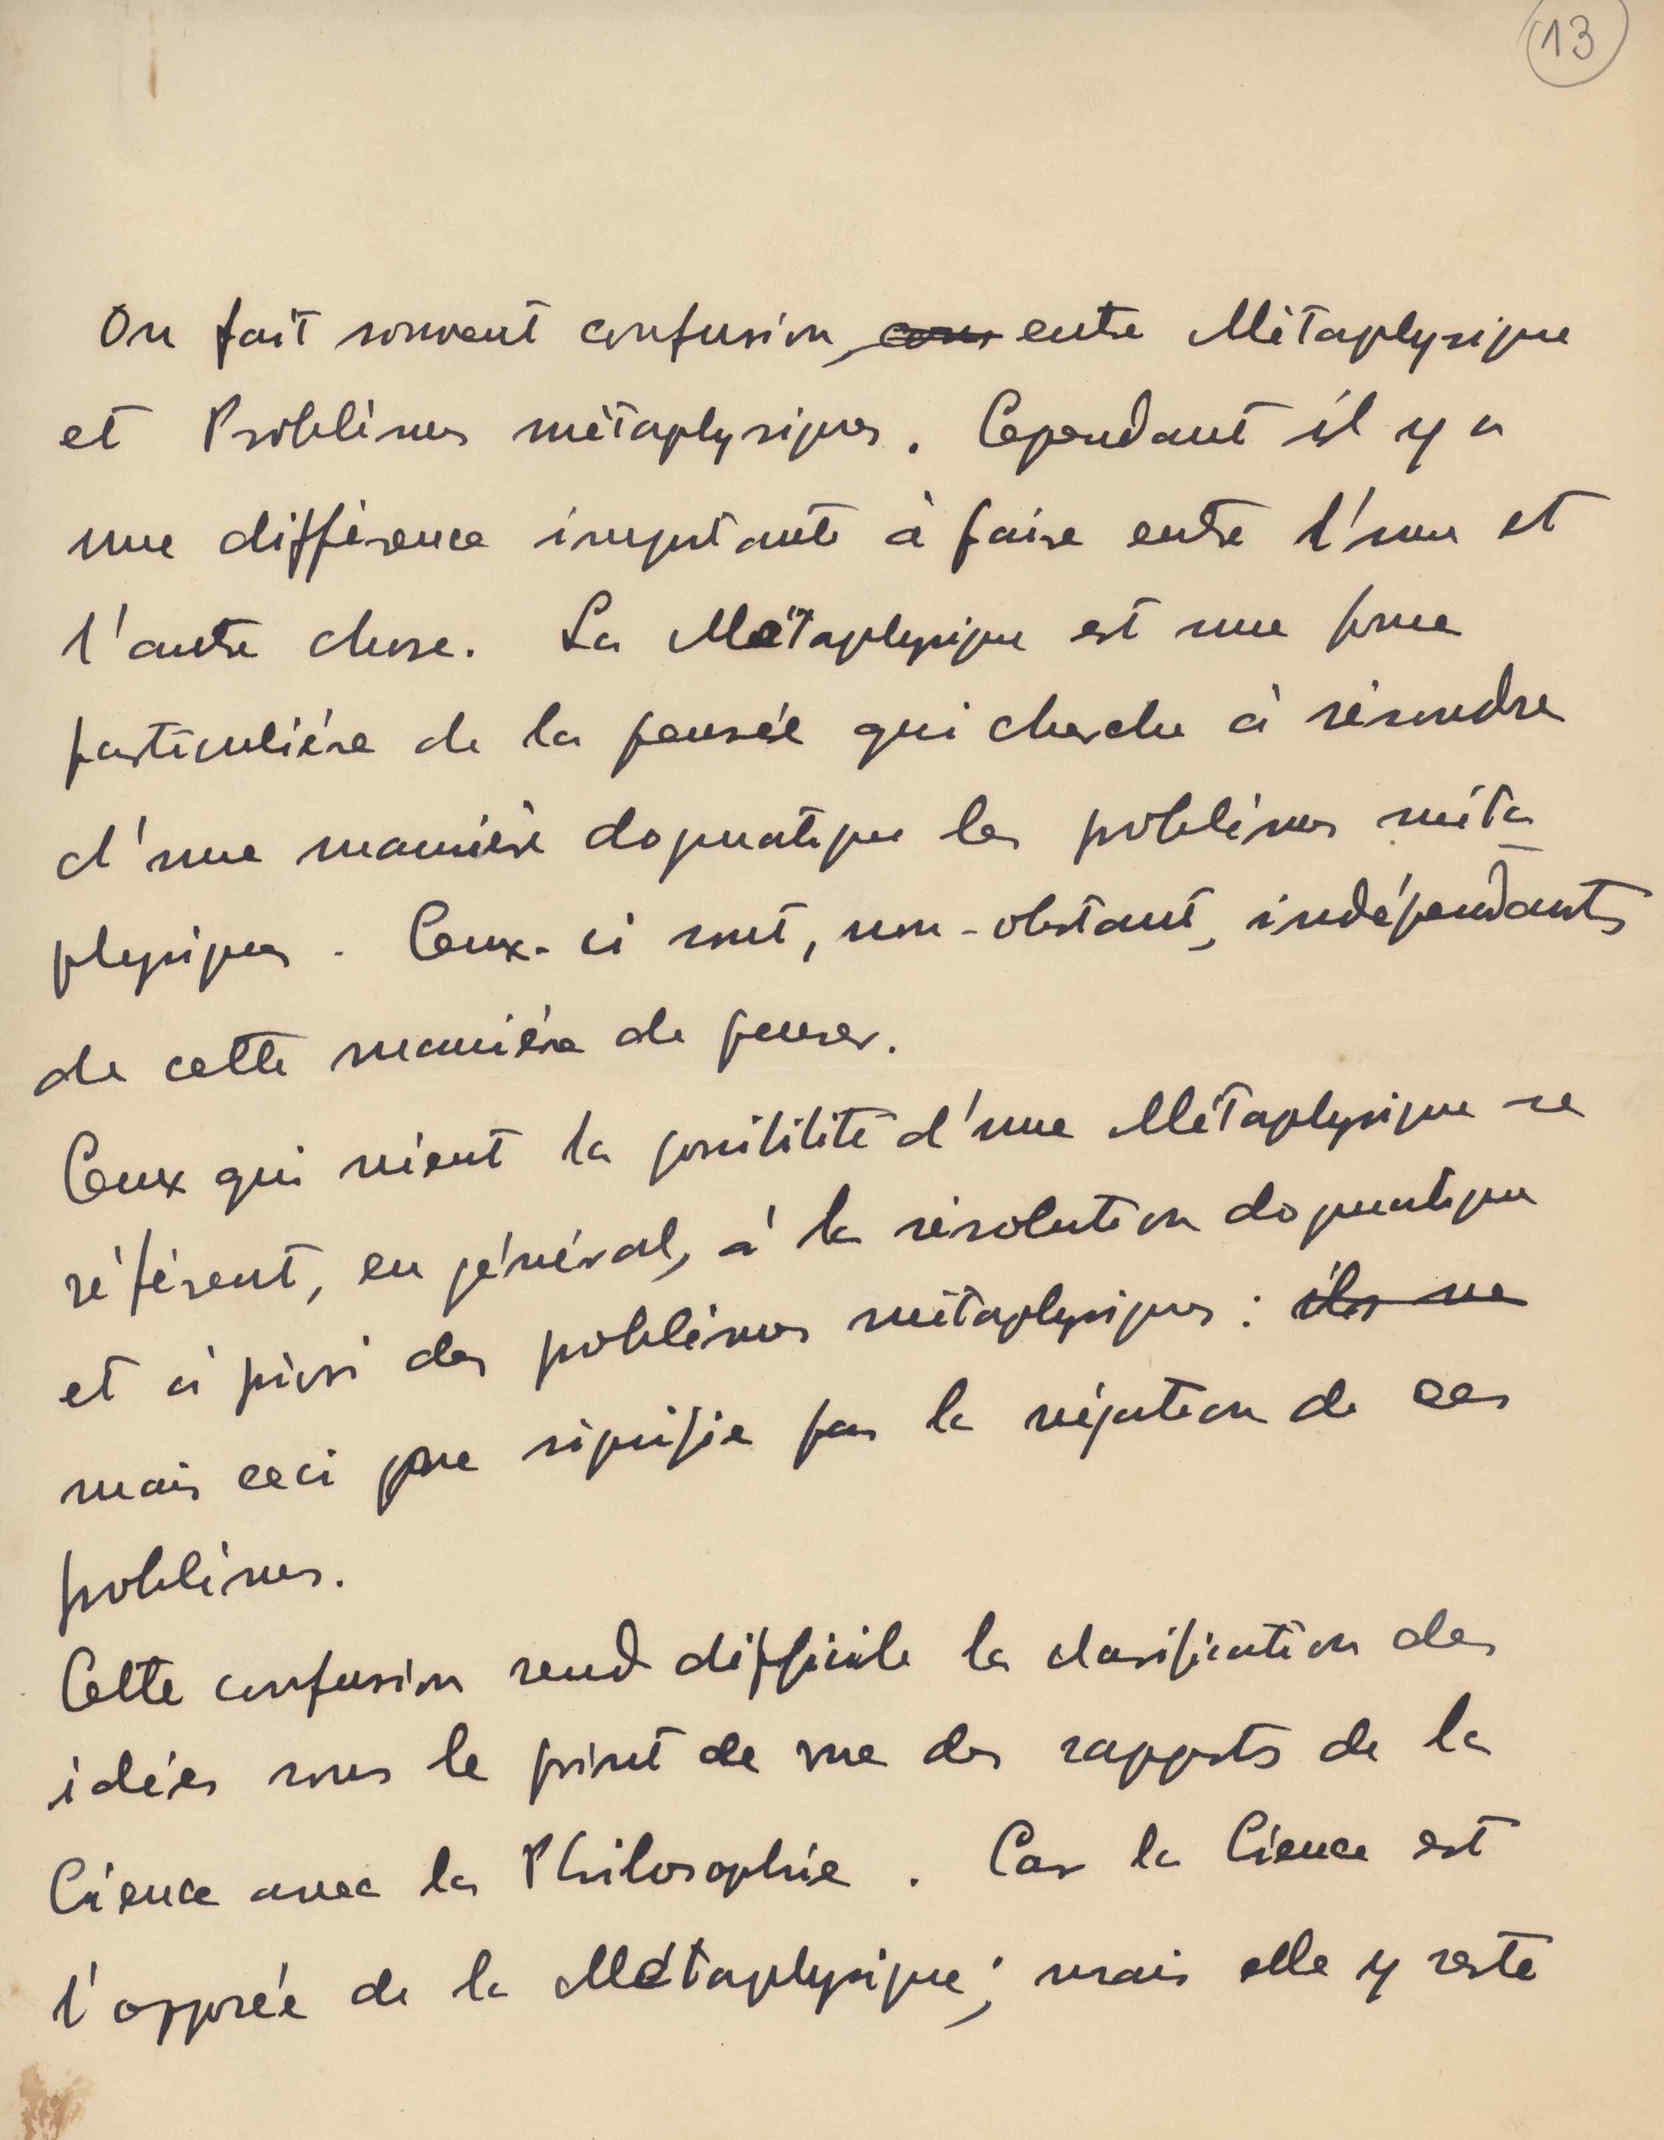 13
On fait souvent confusion, cons entre Métaphysique
et Problèmes métaphysiques. Cependant il y a
une différence importante à faire entre l'une et
l'autre chose. La Métaphysique est une forme
particulière de la pensée qui cherche à résoudre
d'une manière dogmatique les problèmes méta
physiques. Ceux-ci sont, non-obstant, indépendants
de cette manière de penser.
Ceux qui nient la possibilité d'une Métaphysique se
réfèrent, en général, à la résolution dogmatique
et à priori des problèmes métaphysiques: ils ne
mais ceci ne signifie pas la négation de ces
problèmes.
Cette confusion rend difficile la clarification des
idées sous le point de vue des rapports de la
Cience avec la Philosophie. Car la Cience est
l'opposée de la Métaphysique; mais elle y reste